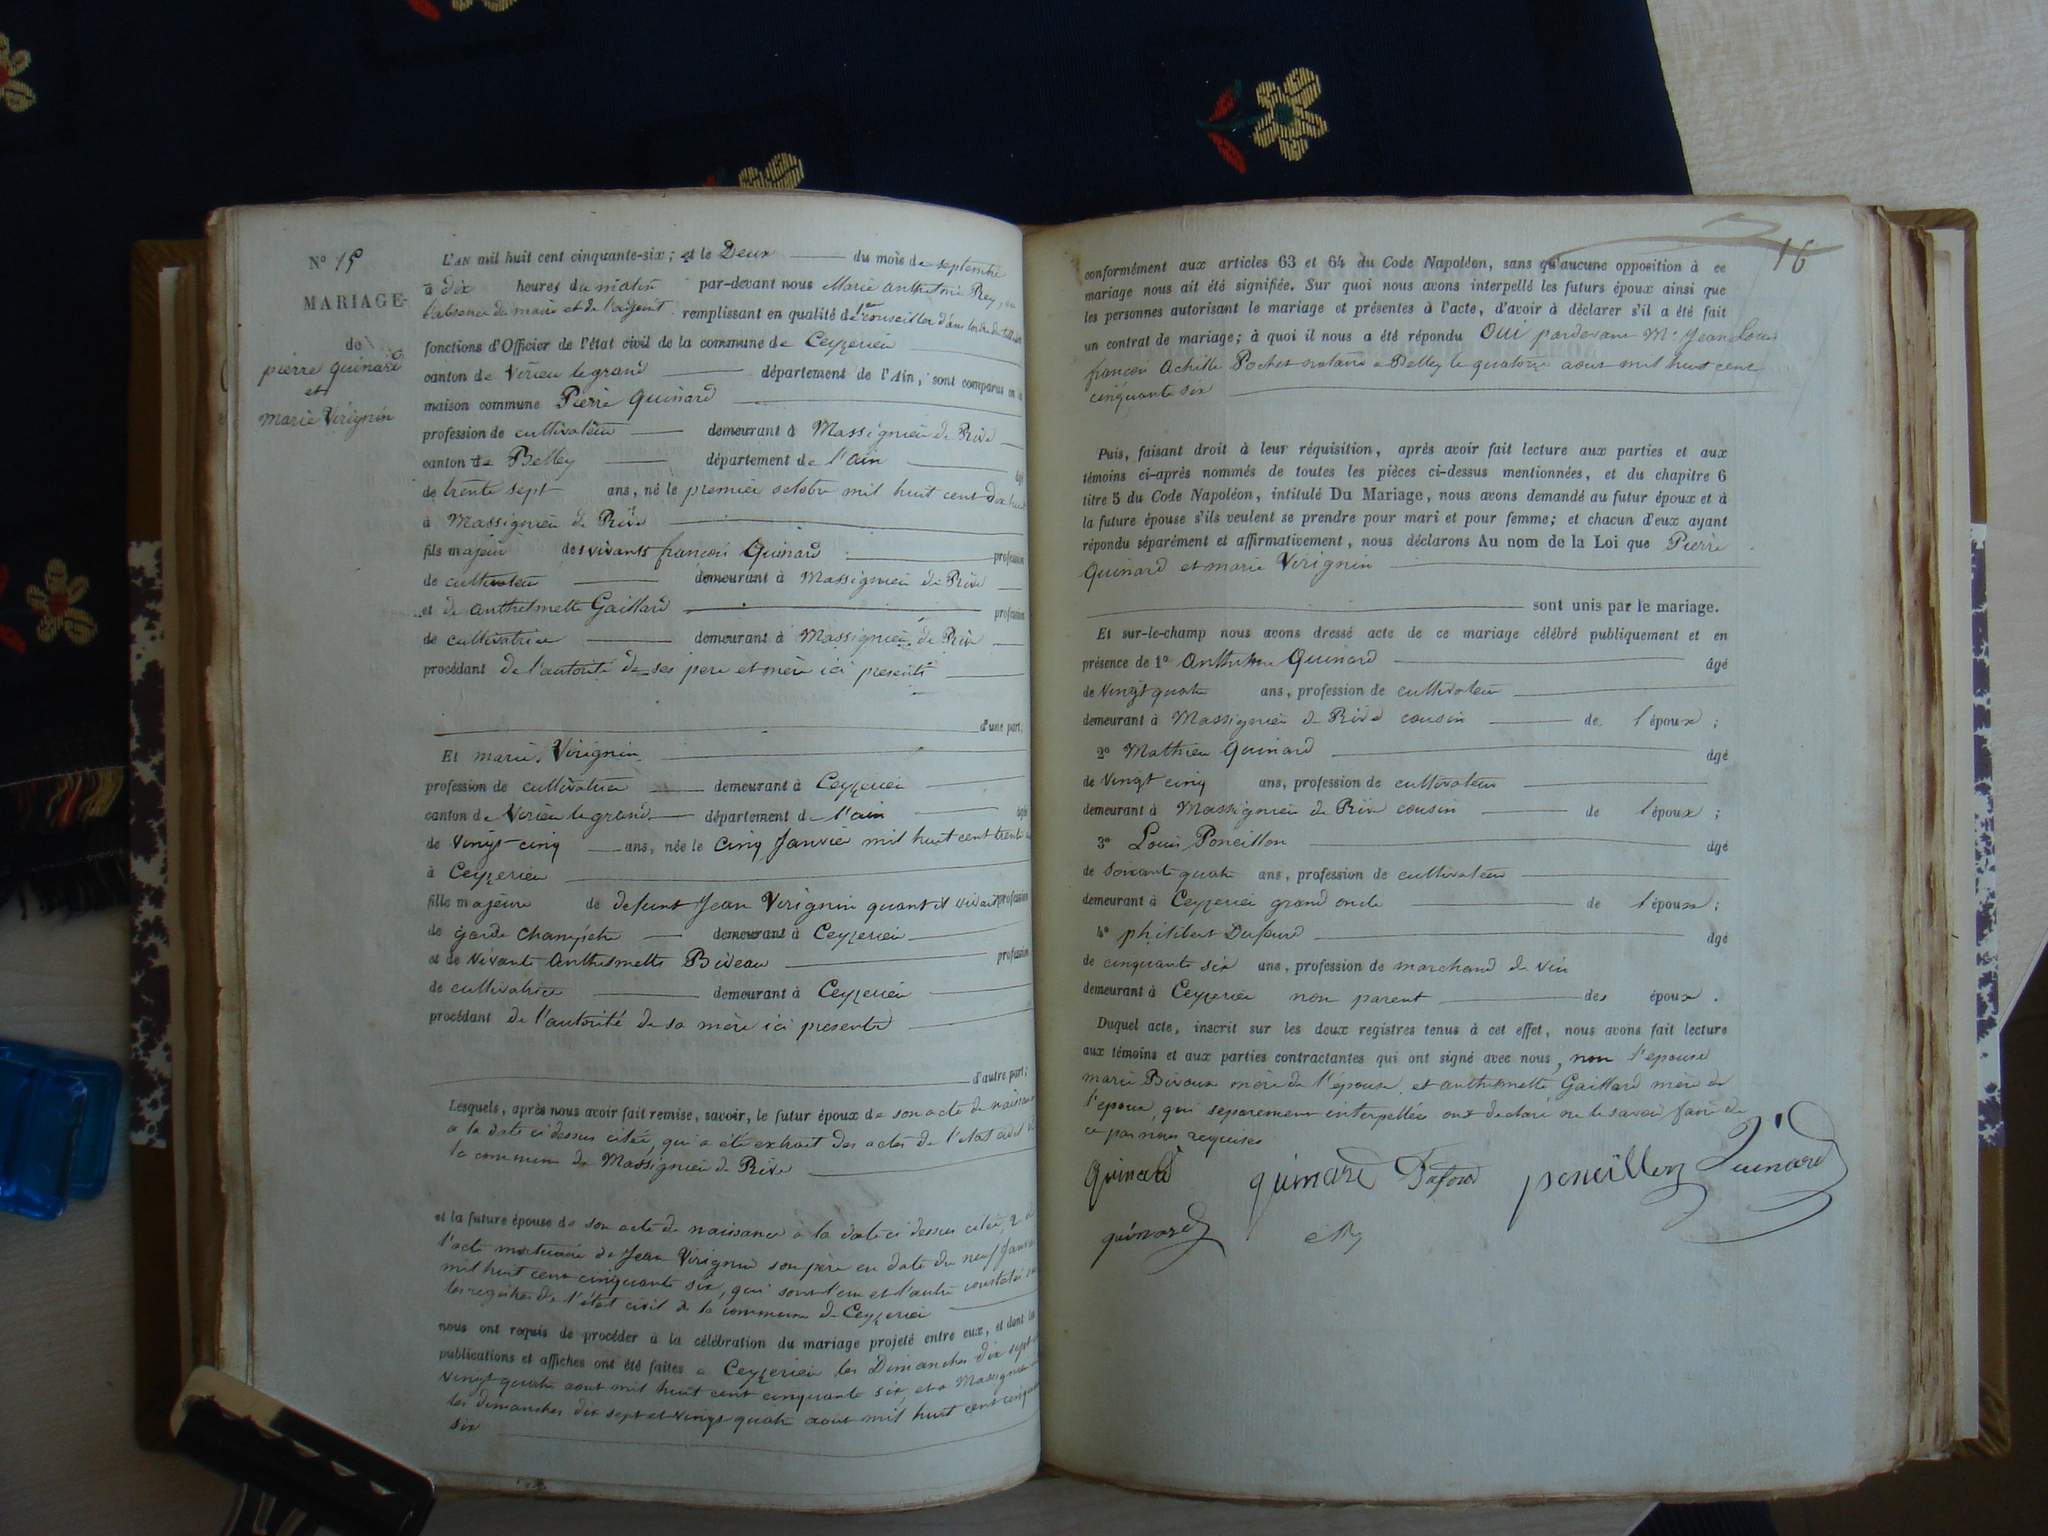 N° 15
MARIAGE
de
pierre quinard
et
marie Virignin
L'AN mil huit cent cinquante-six; et le Deux du mois de septembre
à dix heures du matin par-devant nous Marie anthelme Rey, en
l'absence du maire et de l'adjoint remplissant en qualité de 1er conseiller dans l'ordre du tableau les
fonctions d'Officier de l'état civil de la commune de Ceyzerieu
canton de Virieu le grand département de l'Ain, sont comparus en la
maison commune Pierre Quinard
profession de cultivateur demeurant à Massignieu de Rive
canton de Belley département de l'ain âgé
de trente sept ans, né le premier octobre mil huit cent dix huit
à Massignieu de Rive
fils majeur des vivants françois Quinard profession
de cultivateur demeurant à Massignieu de Rive
et de anthelmette Gaillard profession
de cultivatrice demeurant à Massignieu de Rive
procédant de l'autorité de ses pere et mère ici presents
d'une part;
Et marie Virignin
profession de cultivatrice demeurant à Ceyzerieu
canton de Virieu le grand département de l'ain âgée
de Vingt cinq ans, née le cinq Janvier mil huit cent trente
à Ceyzerieu
fille majeure de defunt Jean Virignin quant il vivait profession
de garde champêtre demeurant à Ceyzerieu
et de vivante Anthelmette Biveau profession
de cultivatrice demeurant à Ceyzerieu
procédant de l'autorité de sa mère ici presente
d'autre part;
Lesquels, après nous avoir fait remise, savoir, le futur époux de son acte de naissance
a la date ci dessus citée, qui a été extrait des actes de l'etat civil de
la commune de Massignieu de Rive
et la future épouse de son acte de naissance a la date ci dessus citée, et de
l'acte mortuaire de Jean Virignin son père en date du neuf Janvier
mil huit cent cinquante six, qui sont l'un et l'autre constatés sur
les registres de l'état civil de la commune de Ceyzerieu
nous ont requis de procéder à la célébration du mariage projeté entre eux, et dont les
publications et affiches ont été faites a Ceyzerieu les Dimanches dix sept et
vingt quatre aout mil huit cent cinquante six, et a Massignieu
les dimanches dix sept et vingt quatre aout mil huit cent cinquante
six
16
conformément aux articles 63 et 64 du Code Napoléon, sans qu'aucune opposition à ce
mariage nous ait été signifiée. Sur quoi nous avons interpellé les futurs époux ainsi que
les personnes autorisant le mariage et présentes à l'acte, d'avoir à déclarer s'il a été fait
un contrat de mariage; à quoi il nous a été répondu OUI pardevant Me Jean Louis
francois Achille Pochet notaire a Belley le quatorze aout mil huit cent
cinquante six
Puis, faisant droit à leur réquisition, après avoir fait lecture aux parties et aux
témoins ci-après nommés de toutes les pièces ci-dessus mentionnées, et du chapitre 6
titre 5 du Code Napoléon, intitulé Du Mariage, nous avons demandé au futur époux et à
la future épouse s'ils veulent se prendre pour mari et pour femme; et chacun d'eux ayant
répondu séparément et affirmativement, nous déclarons Au nom de la Loi que Pierre
Quinard et marie Virignin
sont unis par le mariage.
Et sur-le-champ nous avons dressé acte de ce mariage célébré publiquement et en
présence de 1° Anthelme Quinard âgé
de vingt quatre ans, profession de cultivateur
demeurant à Massignieu de Rive cousin de l'époux;
2° Mathieu Quinard âgé
de vingt cinq ans, profession de cultivateur
demeurant à Massignieu de Rive cousin de l'époux;
3° Louis Poncillon âgé
de Soixante quatre ans, profession de cultivateur
demeurant à Ceyzerieu grand oncle de l'épouse;
4° philibert Dufour âgé
de cinquante six ans, profession de marchand de vin
demeurant à Ceyzerieu non parent des époux.
Duquel acte, inscrit sur les deux registres tenus à cet effet, nous avons fait lecture
aux témoins et aux parties contractantes qui ont signé avec nous, non l'epouse
marie Biveaux mère de l'épouse et anthelmette Gaillard mère de
l'epoux, qui separement interpellées ont declaré ne le savoir faire de
ce par nous requises
Quinard quinard Dufour poncillon Quinard
quinard Rey